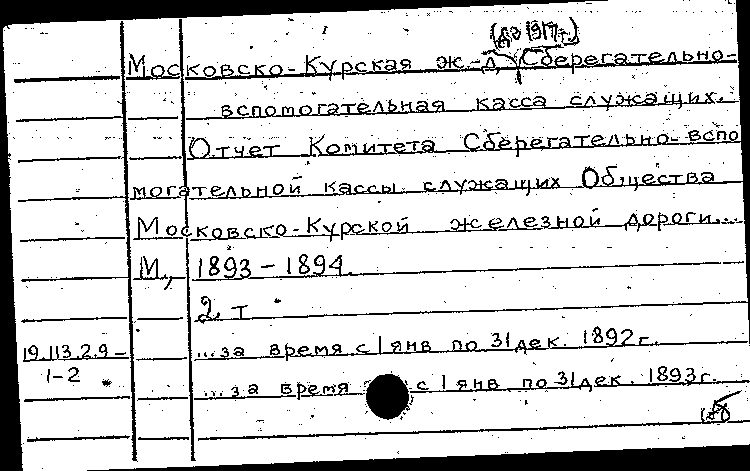 (до 1917г.)
Московско-Курская ж.-д. Сберегательно-
вспомогательная касса служащих.
Отчет Комитета Сберегательно-вспо
могательной кассы служащих Общества
Московско-Курской железной дороги...
М., 1893-1894.
2 т
19.113.2.9- ...за время с 1 янв по 31 дек. 1892г.
1-2 ...за время с 1 янв по 31 дек. 1893г.